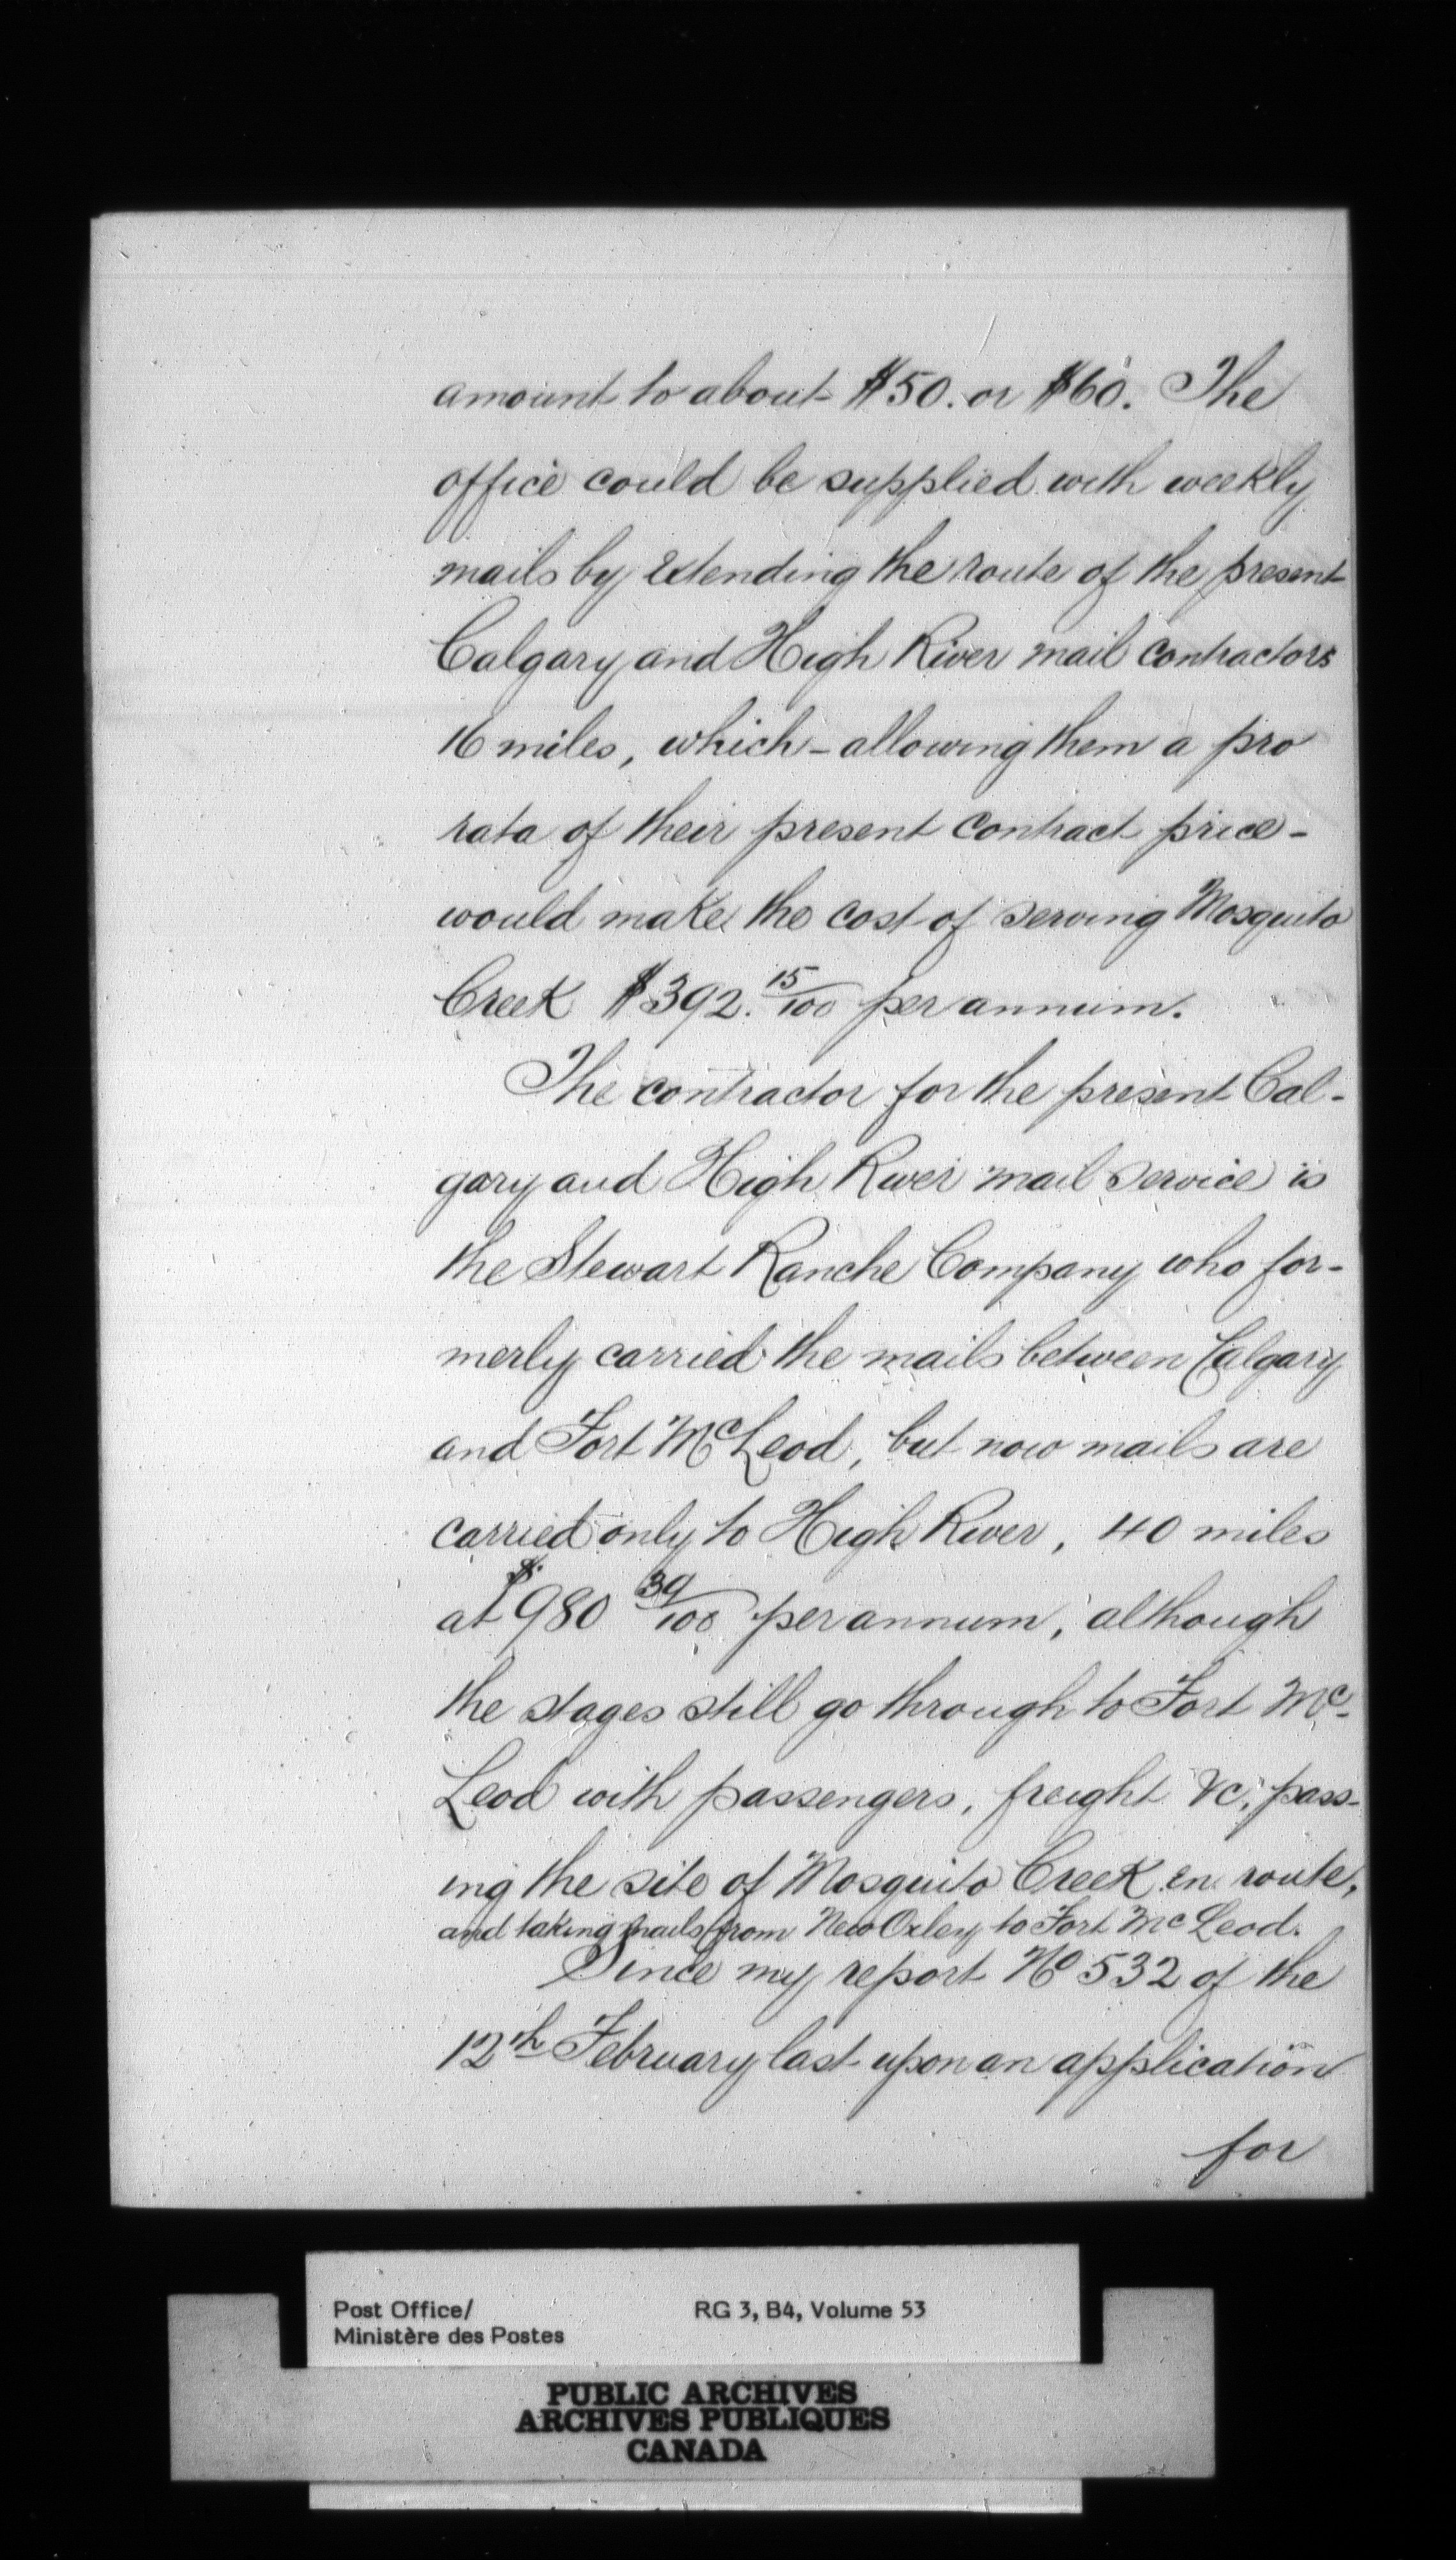 amount to about $50. or $60. The
office could be supplied with weekly
mails by extending the route of the present
Calgary and High River mail contractors
16 miles, which - allowing them a pro
rata of their present contract price -
would make the cost of serving Mosquito
Creek $392. 15/100 per annum.
The contractor for the present Cal-
gary and High River mail service is
the Stewart Ranche Company who for-
merly carried the mails between Calgary
and Fort McLeod, but now mails are
carried only to High River, 40 miles
at $980 39/100 per annum, although
the stages still go through to Fort Mc-
Leod with passengers, freight &c, pass-
ing the site of Mosquito Creek en route,
and taking mails from New Oxley to Fort McLeod.
Since my report No 532 of the
12th February last upon an application
for
Post Office/ RG 3, B4, Volume 53
Ministère des Postes
PUBLIC ARCHIVES
ARCHIVES PUBLIQUES
CANADA